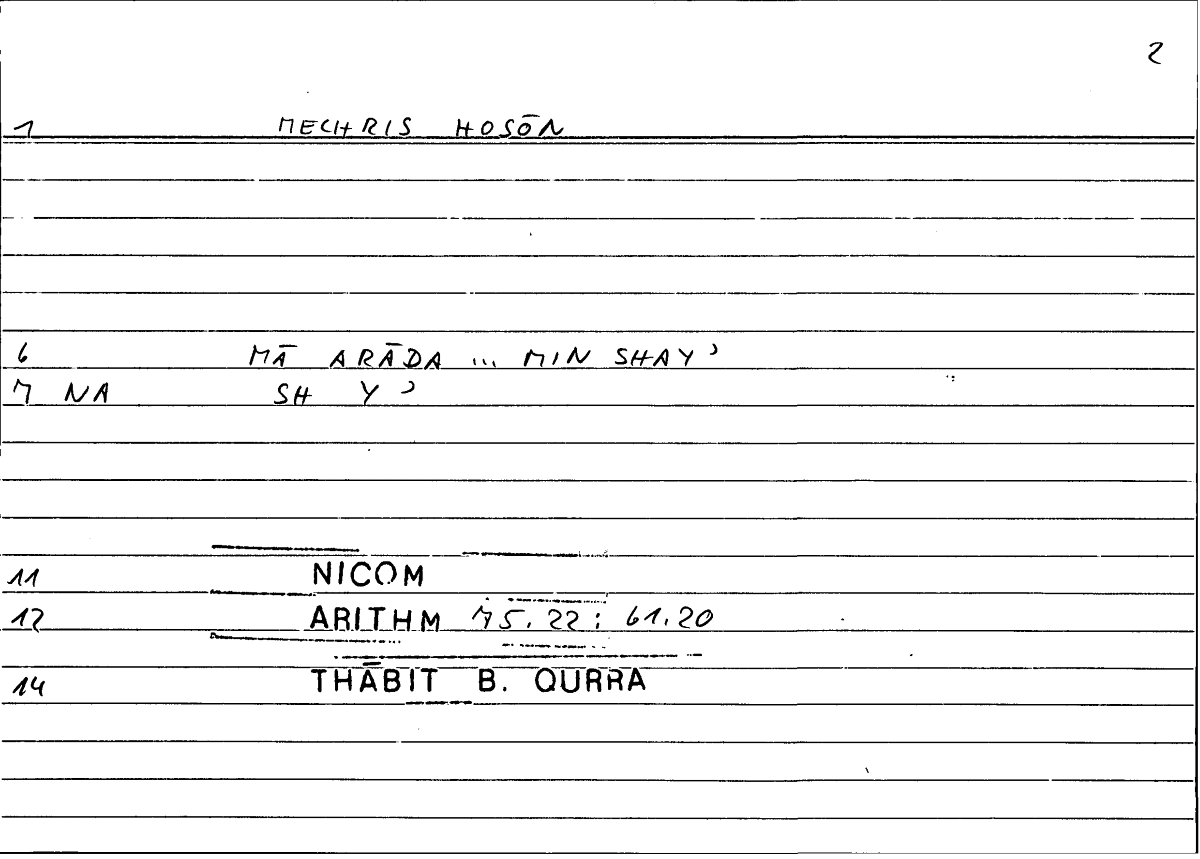 2
1 MECHRIS HOSŌN
6 MĀ ARĀDA ... MIN SHAYʾ
7 NA SH Yʾ
11 NICOM
12 ARITHM 75.22 : 61.20
14 THĀBIT B. QURRA